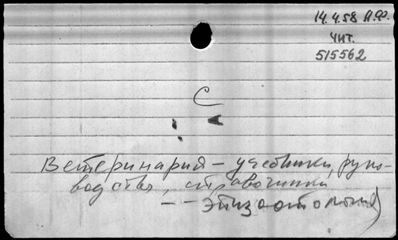 14.4.58 А.Ф.
чит.
515562
С
А
Ветеринария — учебники, руко-
водства, справочники
— — эпизоотология)